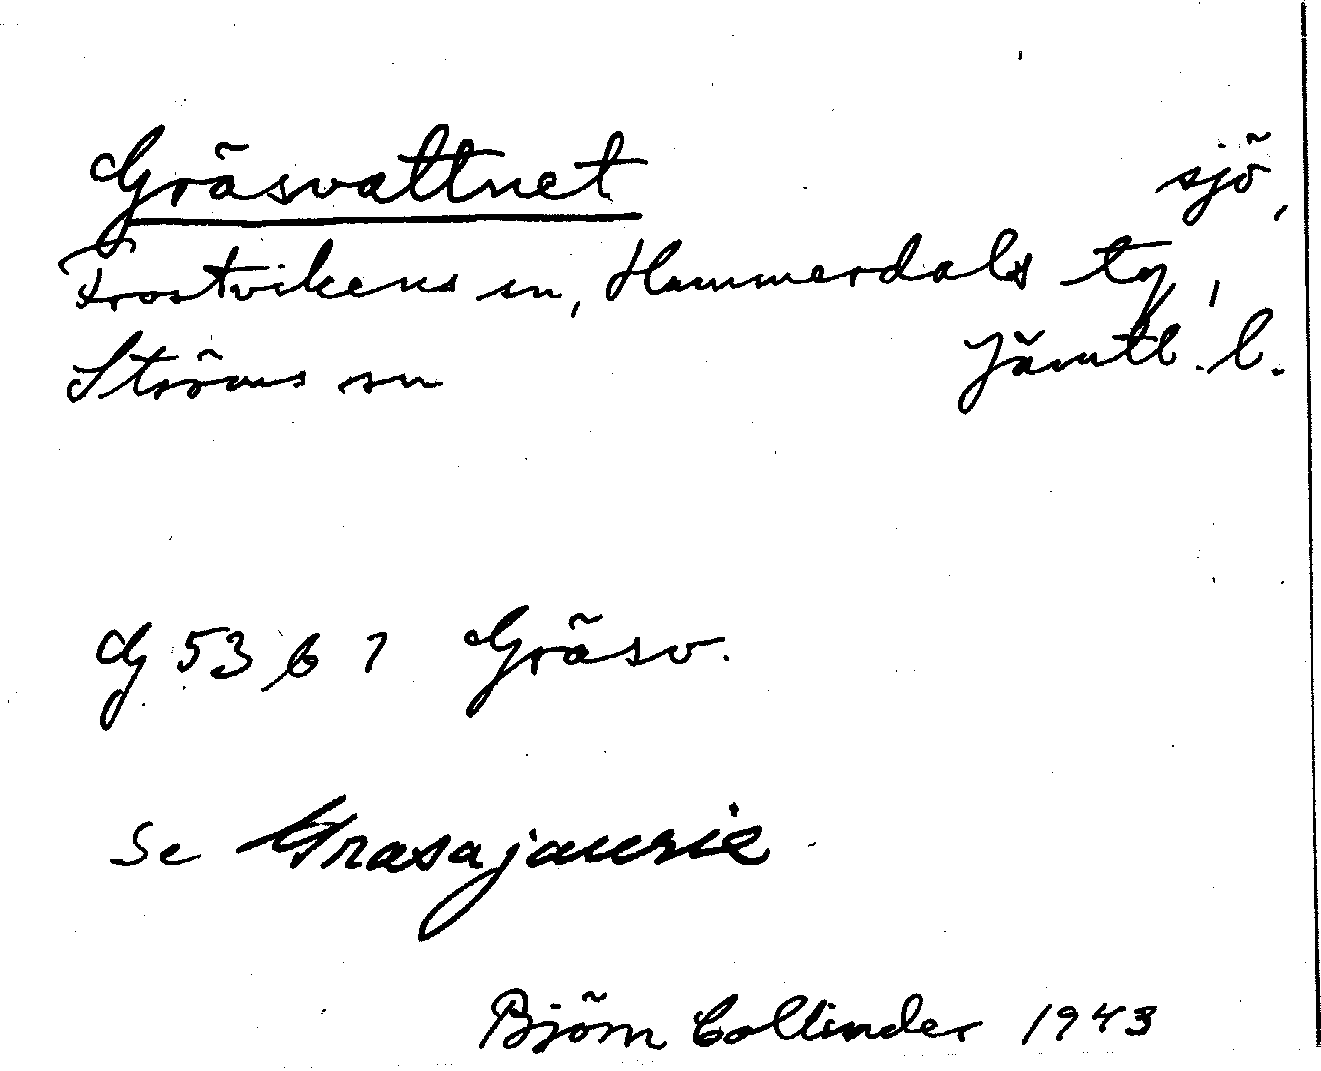 Gräsvattnet sjö,
Frostvikens sn, Hammerdals tg,
Ströms sn Jämtl. l.
G 53 b 1 Gräsv.
Se Grasajaurie
Björn Collinder 1943